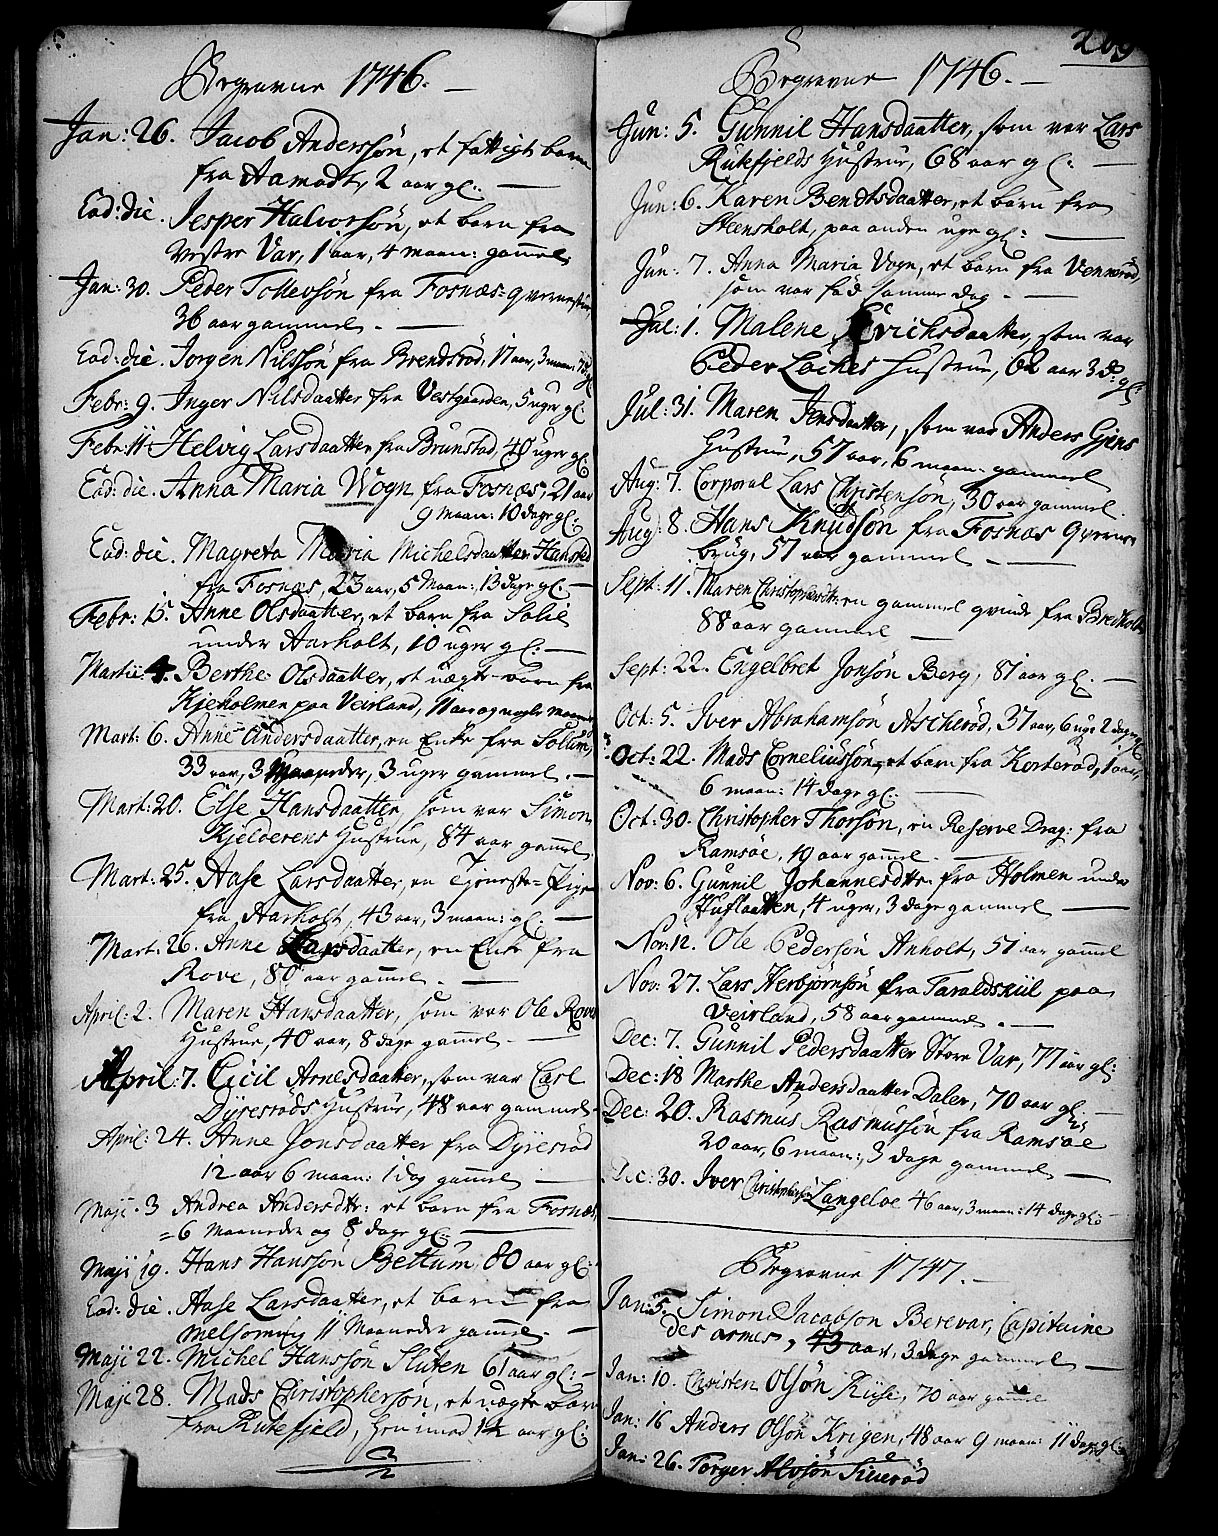 Begravne 1746. —
Jan: 26. Jacob Andersøn, et fattigt barn
fra Aamodt, 2 aar gl: —
Ead: die. Jesper Halvorsøn, et barn fra
Vestre Var, 1 aar, 4 maan: gam̄el
Jan: 30. Peder Tollevsøn fra Fosnæs=
36 aar gammel. —
Ead: die. Jørgen Nilssøn fra Brendsrød, 17 aar, 3 maan:
Febr: 9. Inger Nilsdaatter fra Vestgaarden, 5 uger gl:
Febr: 11. Helvig Larsdaatter fra Brunstad, 40 uger gl:
Ead: die. Anna Maria Wogn fra Fosnæs, 21 aar
9 maan: 10 dage gl:
Ead: die. Magreta Maria Michelsdaatter Hansted
fra Fosnæs, 23 aar, 5 Maan: 13 dage gl: —
Febr: 15. Anne Olsdaatter, et barn fra Solie
under Aarholt, 10 uger gl: —
Martii: 4. Berthe Olsdaatter, et uægte barn fra
Kjeholmen paa Veirland, 11 aar og nogle maan:
Mart: 6. Anne Andersdaatter, en Enke fra Sollum,
33 aar, 3 Maaneder, 3 uger gammel. —
Mart: 20. Else Hansdaatter, som var Simon
Kjelderens Hustrue, 84 aar gam̄el
Mart: 25. Aase Larsdaatter, en Tjeneste=Pige
fra Aarholt, 43 aar, 3 maan: gl: —
Mart: 26. Anne Larsdaatter, en Enke fra
Rove, 80 aar gam̄el. —
April: 2. Maren Hansdaatter, som var Ole Rove
Hustrue, 40 aar, 8 dage gam̄el —
April: 7. Cicil Arnesdaatter, som var Carl
Dyresrøds Hustrue, 48 aar gammel.
April: 24. Anne Jonsdaatter fra Dyresrød
12 aar 6 maan: 1 dag gam̄el —
Maji: 3 Andrea Andersdtr: et barn fra Fosnæs,
=6 Maaneder og 8 dage gl: —
Maji 19. Hans Hanssøn Bettum 80 aar gl:
Ead: die. Aase Larsdaatter, et barn fra
Melsomvig 11 Maaneder gam̄el. —
Maji 22. Michel Hanssøn Sluten 61 aar gl: —
Maji 28. Mads Christophersøn, et uægte barn
fra Rukefjeld, hen imod 14 aar gl:
269
Begravne 1746. —
Jun: 5. Gunnil Hansdaatter, som var Lars
Rukefjelds Hustrue, 68 aar gl: —
Jun: 6. Karen Bendtsdaatter, et barn fra
Steensholt, paa anden uge gl: —
Jun: 7. Anna Maria Vogn, et barn fra Vennerød,
som var fød samme dag. —
Jul: 1. Malene Erichsdaatter, som var
Peder Laches Hustrue, 62 aar 3 d: gl:
Jul: 31. Maren Jensdaatter, som var Anders Gjens
Hustrue, 57 aar, 6 maan: gammel
Aug: 7. Corporal Lars Christensøn, 30 aar gammel.
Aug: 8. Hans Knudsøn fra Fosnæs Qverne=
brug, 57 aar gammel —
Sept: 11. Maren Christophersdtr: en gammel qvinde fra Bredholt
88 aar gammel —
Sept: 22. Engelbret Jonsøn Berg, 81 aar gl. —
Oct: 5. Iver Abrahamsøn Ascherød, 37 aar, 6 uge 2 dage gl
Oct: 22. Mads Corneliussøn, et barn fra Korterød, 1 aar,
6 maan: 14 dage gl: —
Oct: 30. Christopher Thorsøn, en Reserve Drag: fra
Ramsøe, 19 aar gam̄el. —
Nov: 6. Gunnil Johannesdtr. fra Holmen under
Huflaatten, 4 uger, 3 dage gammel —
Nov: 12. Ole Pedersøn Anholt, 51 aar gam̄el
Nov: 27. Lars Herbjørnsøn fra Taraldskiil paa
Veirland, 58 aar gammel. —
Dec: 7. Gunnil Pedersdaatter Store Var, 77 aar gl:
Dec: 18 Marthe Andersdaatter Dalen, 70 aar gl: —
Dec: 20. Rasmus Rasmussøn fra Ramsøe
20 aar, 6 maan:, 3 dage gammel —
Dec: 30. Iver Christophersøn Langeloe 46 aar, 3 maan: 14 dage gl:
Begravne 1747. —
Jan: 5. Simon Jacobson Berevar, Capitaine
des armes, 43 aar, 3 dage gammel —
Jan: 10. Christen Olsøn Riise, 70 aar gam̄el
Jan: 16 Anders Olsøn Krigen, 48 aar 9 maan: 11 dage gl:
Jan: 26. Torger Alvsøn Siuerød